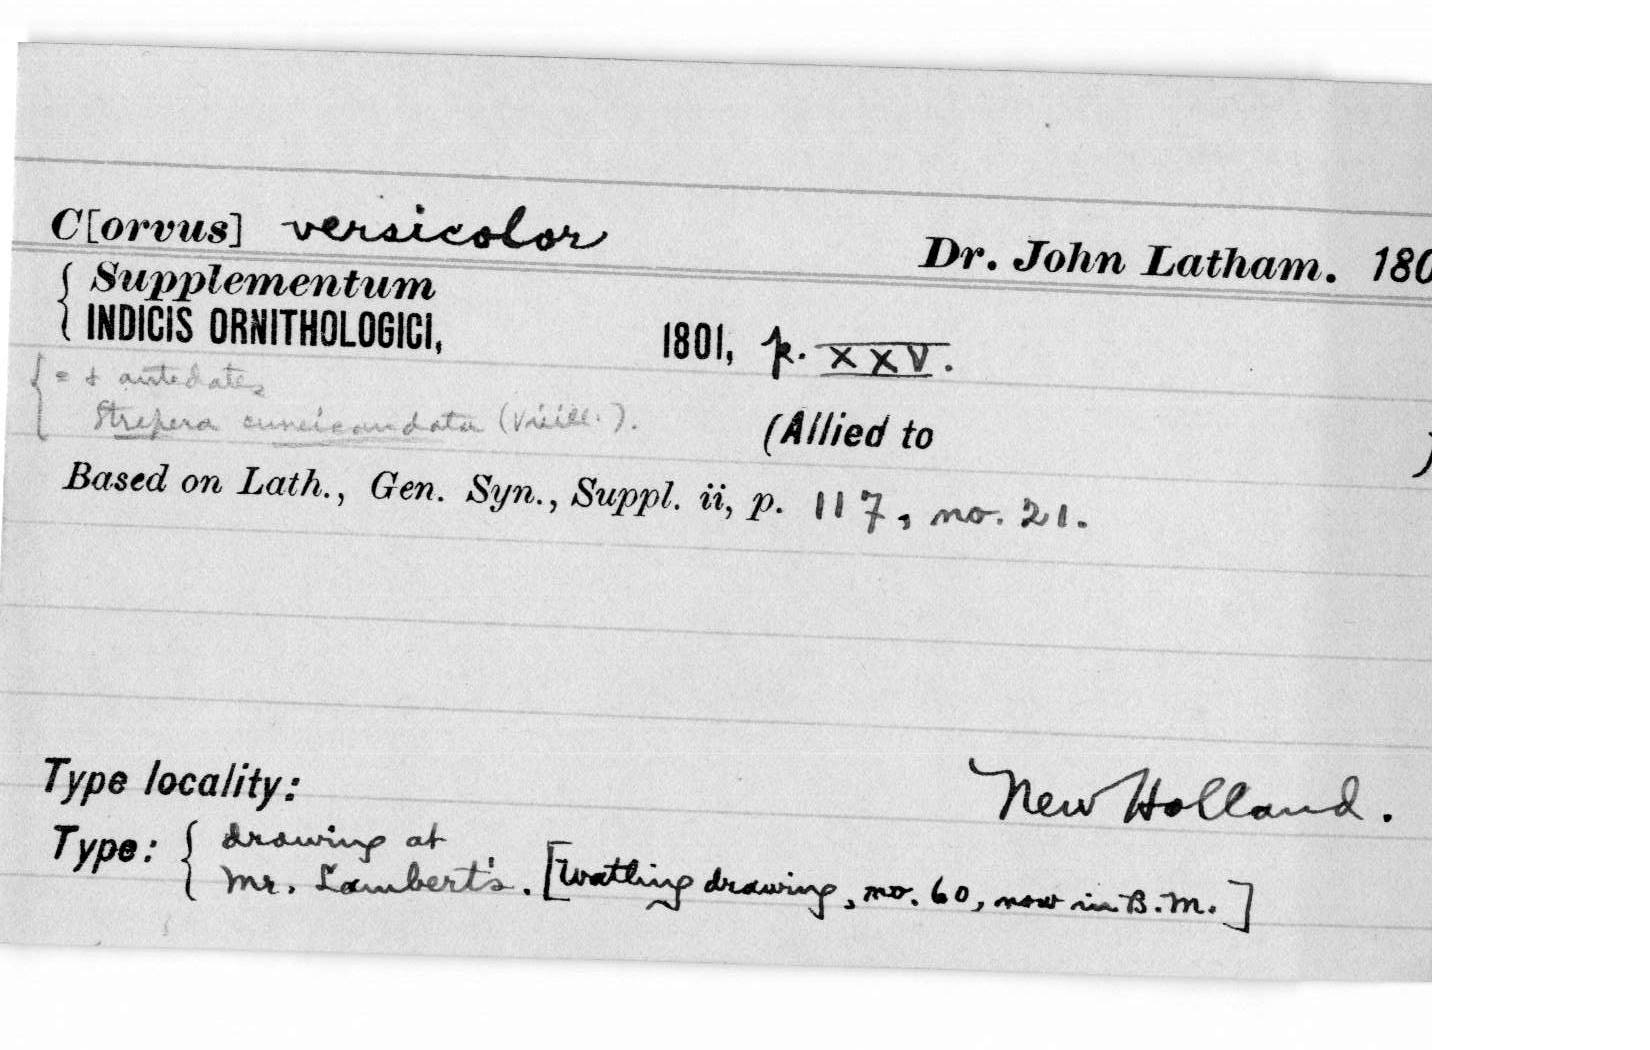 C[orvus] versicolor
Dr. John Latham. 180
Supplementum
INDICIS ORNITHOLOGICI, 1801, p. XXV.
= & antedates
Strepera cuneicaudata (Vieill.).
(Allied to )
Based on Lath., Gen. Syn., Suppl. ii, p. 117, no. 21.
Type locality: New Holland.
Type: drawing at
Mr. Lambert's. [Watling drawing, no. 60, now in B.M.]